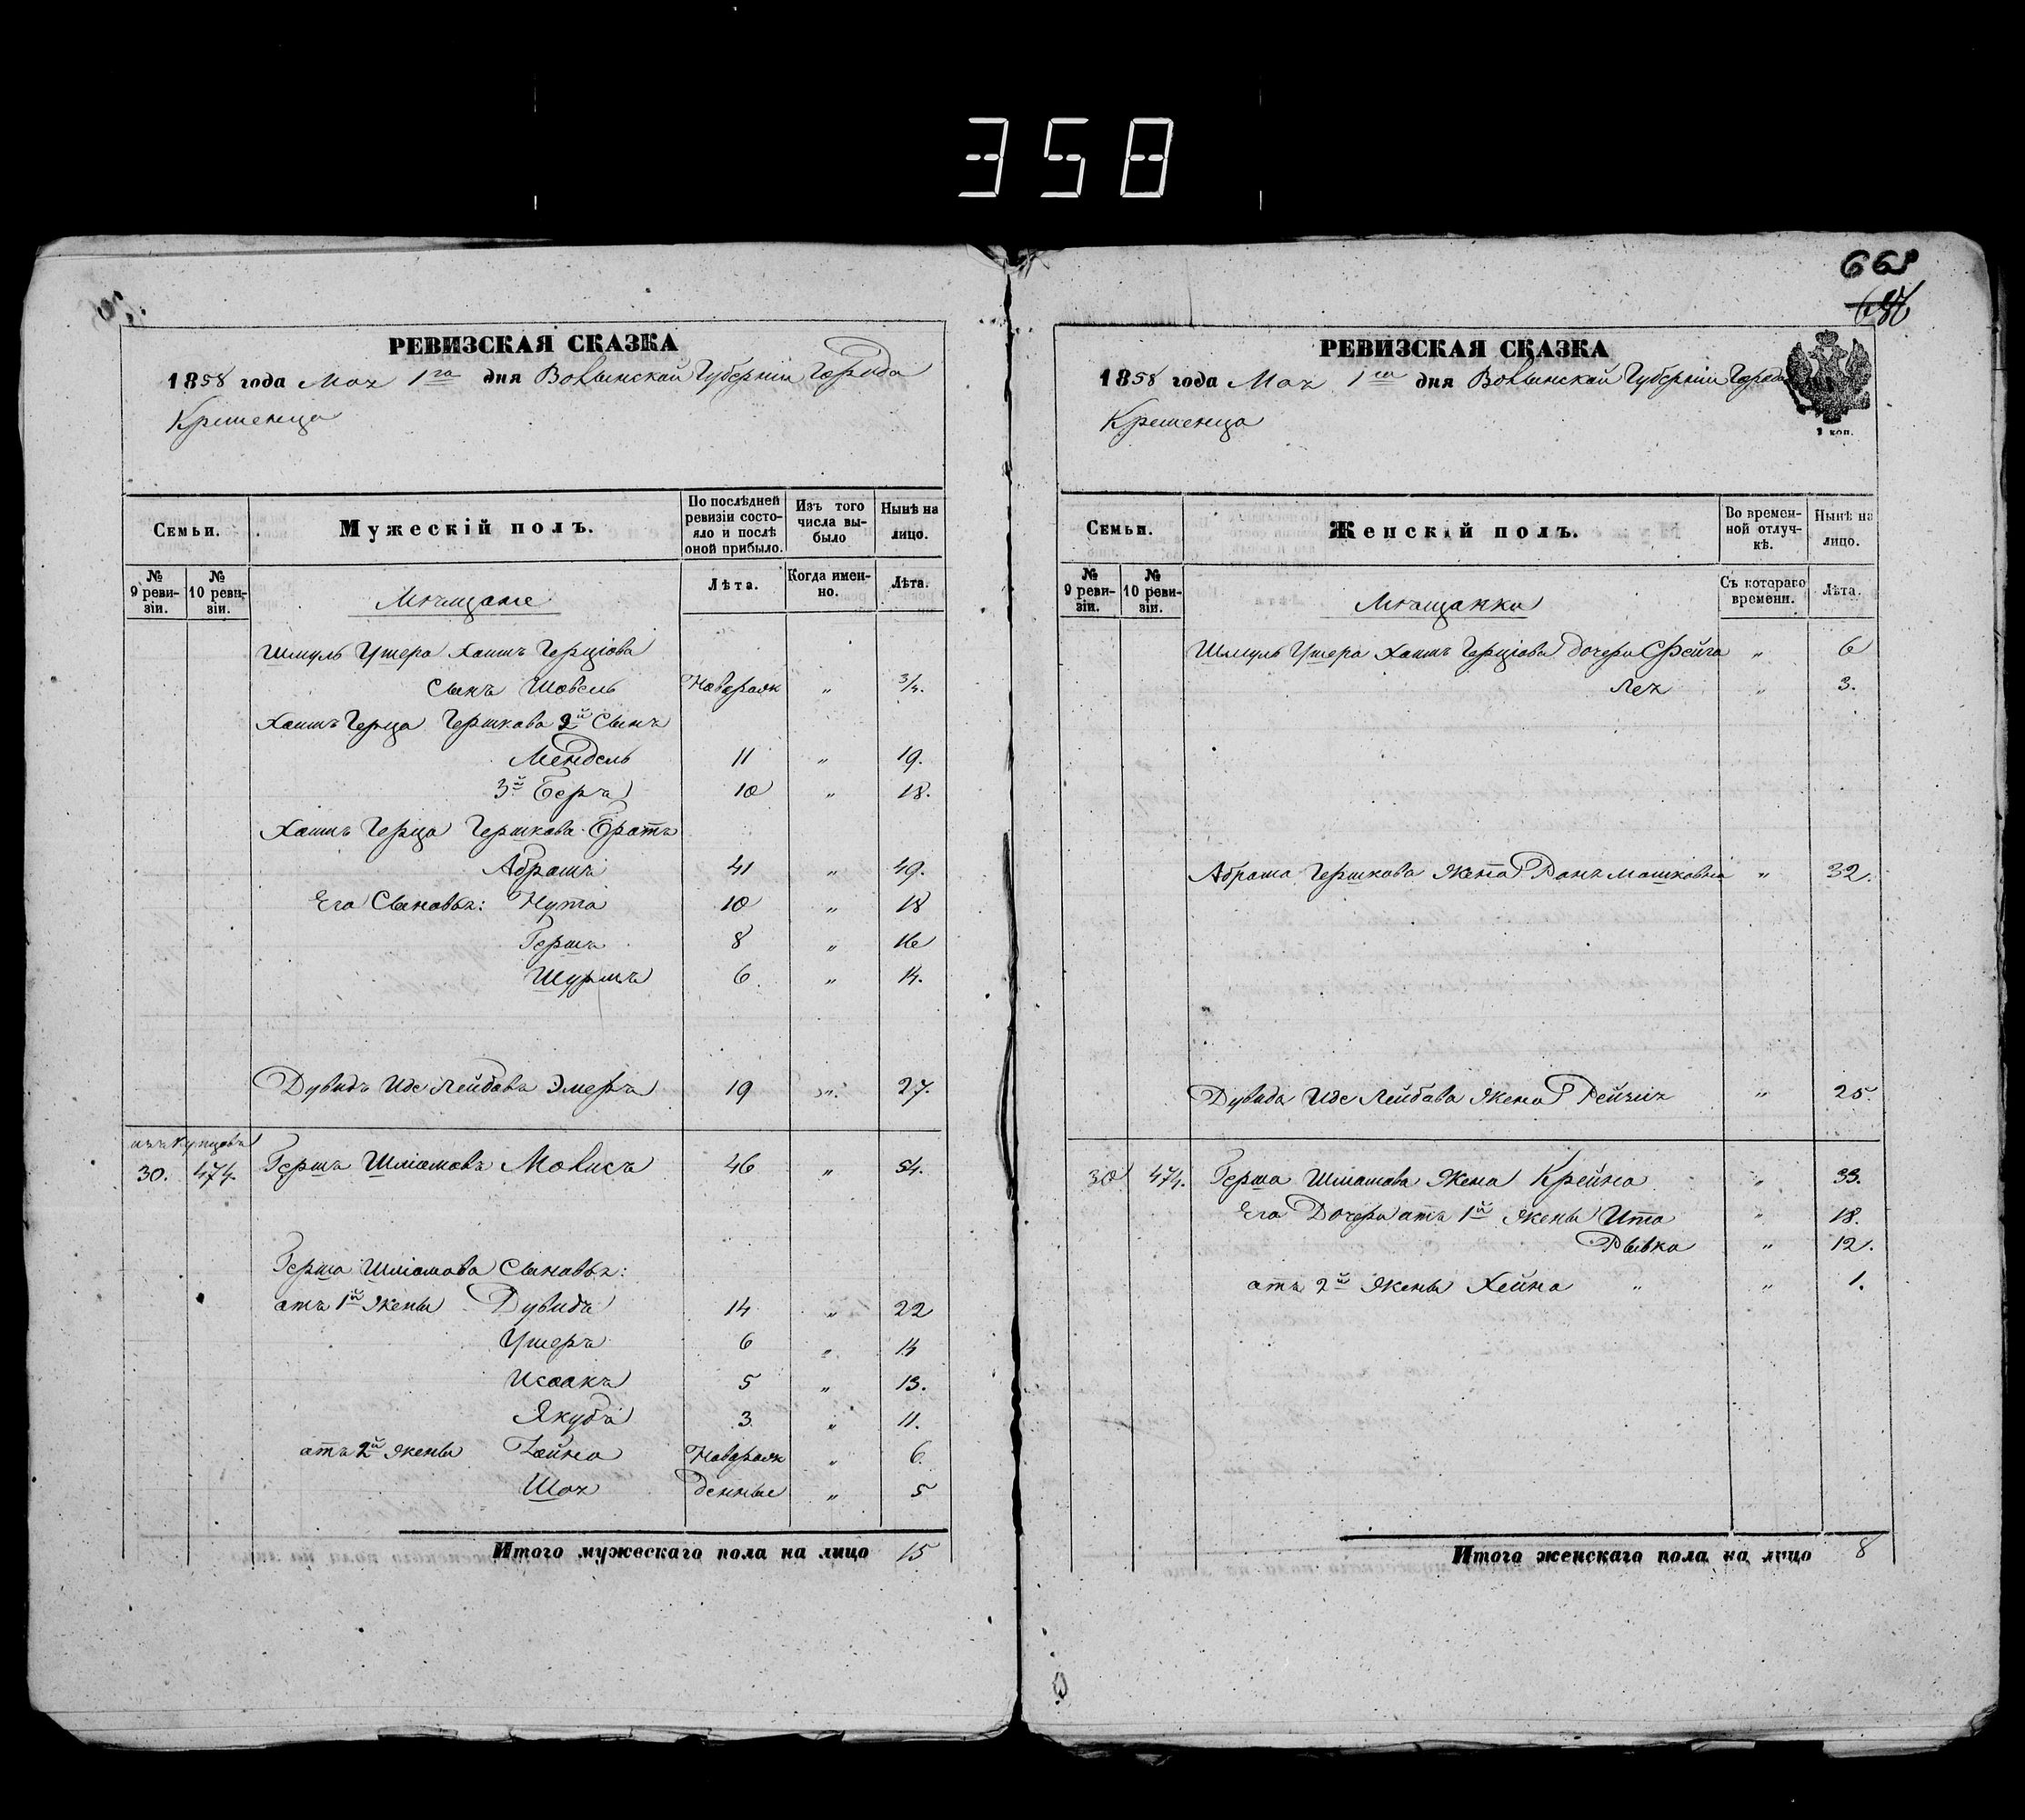 358
668
РЕВИЗСКАЯ СКАЗКА
1858 года Мая 1го дня Волынской Губерніи Города
Кременца
Семьи.
Мужескій полъ.
По послѣдней ревизіи состояло и послѣ оной прибыло.
Изъ того числа выбыло
Нынѣ на лицо.
№ 9 ревизіи.
№ 10 ревизіи.
Мѣщане
Лѣта.
Когда именно.
Лѣта.
Шмуль Ушера Хаимъ Герціова
Сынъ Шовель Новорожд „ 3/4.
Хаимъ Герца Гершкова 2й Сынъ
Мендель 11 „ 19.
3й Беръ 10 „ 18.
Хаимъ Герца Гершкова Братъ
Абрамъ 41 „ 49.
Его Сыновья: Нута 10 „ 18
Гершъ 8 „ 16
Шурмъ 6 „ 14.
Дувидъ Иде Лейбовъ Эмеръ 19 „ 27.
изъ купцовъ
30. 474. Гершъ Шліомовъ Мовисъ 46 „ 54.
Герша Шліомова Сыновья:
отъ 1й жены Дувидъ 14 „ 22
Ушеръ 6 „ 14
Исаакъ 5 „ 13.
Якубъ 3 „ 11.
отъ 2й жены Хайна Новорож „ 6.
Шая денные „ 5
Итого мужескаго пола на лицо 15
РЕВИЗСКАЯ СКАЗКА
1858 года Мая 1го дня Волынской Губерніи Города
Кременца
1 коп.
Семьи.
Женскій полъ.
Во временной отлучкѣ.
Нынѣ на лицо.
№ 9 ревизіи.
№ 10 ревизіи.
Мѣщанки
Съ котораго времени.
Лѣта.
Шмуль Ушера Хаимъ Герціова дочери Фейга „ 6
Лея „ 3.
Абрама Гершкова жена Рая Мошковна „ 32.
Дувида Иде Лейбова жена Рейзя „ 25.
30 474. Герша Шліомова жена Крейна „ 33.
Его Дочери отъ 1й жены Ита „ 18.
Рывка „ 12.
отъ 2й жены Хейна „ „ 1.
Итого женскаго пола на лицо 8